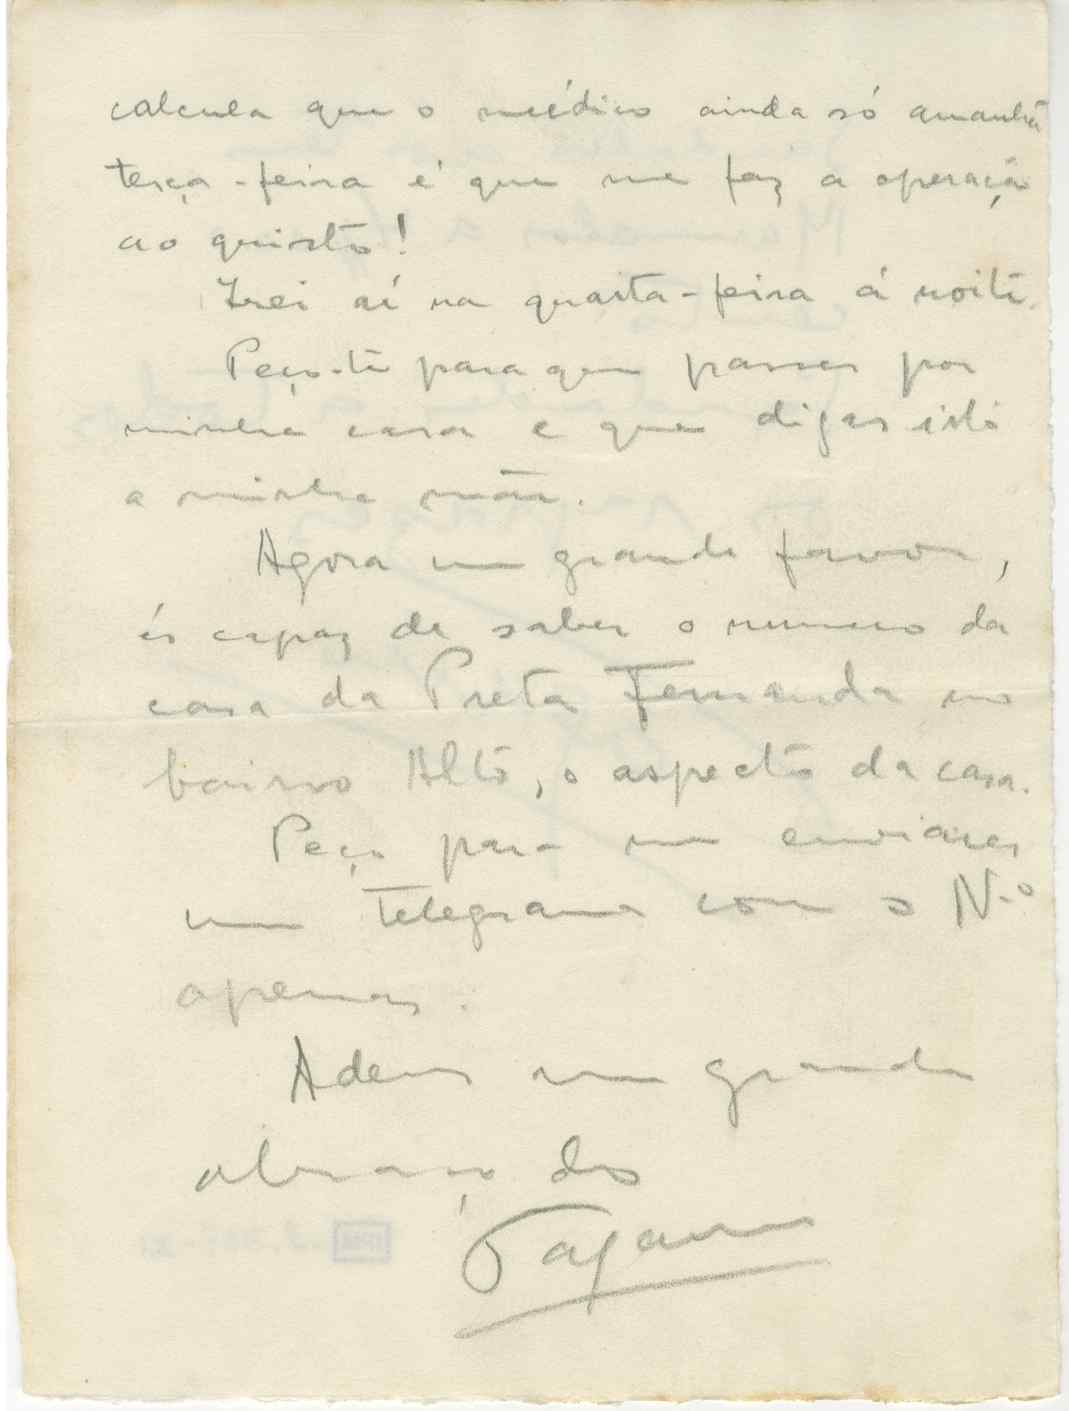 calcula que o médico ainda só amanhã
terça-feira é que me faz a operação
ao quisto!
Irei aí na quarta-feira á noite.
Peço-te para que passes por
minha casa e que digas isto
a minha mãe.
Agora um grande favor,
és capaz de saber o numero da
casa da Preta Fernanda no
bairro Alto, o aspecto da casa.
Peço para me enviares
um telegrama com o N.º
apenas.
Adeus um grande
abraço do